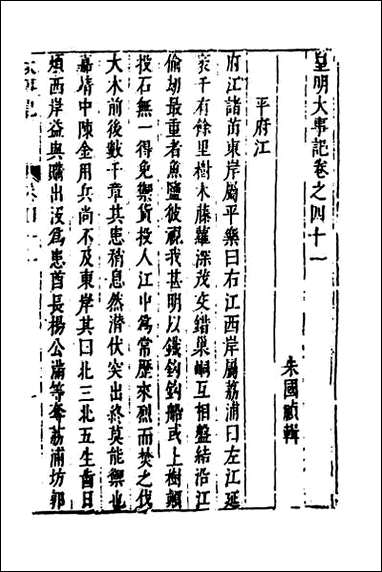 皇明大事記卷之四十一
朱國禎輯
平府江
府江諸苗東岸屬平樂曰右江西岸屬荔浦曰左江延
袤千有餘里樹木藤蘿深茂交錯巢峒互相盤結沿江
偷刼最重者魚鹽彼視我甚明以錢鈎鈎船或上樹顛
投石無一得免禦貨投人江中為常歷來烈而焚之伐
大木前後數千章其患稍息然潛伏突出終莫能禦也
嘉靖中陳金用兵尚不及東岸其曰北三北五生齒日
煩西岸益與購出沒為患酋長楊公滿等奪荔浦坊郭